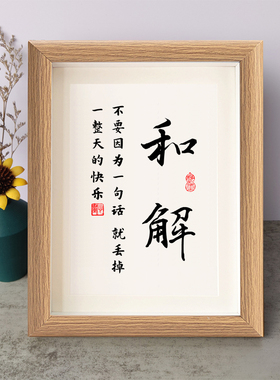 和解
不要因为一句话 就丢掉
一整天的快乐